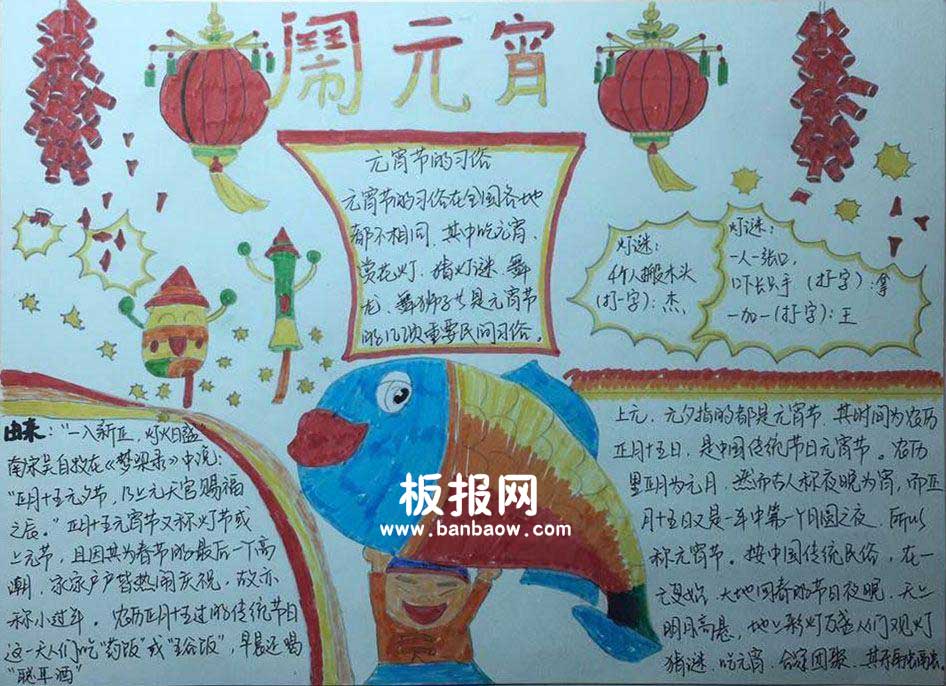 闹元宵
元宵节的习俗
元宵节的习俗在全国各地
都不相同,其中吃元宵、
赏花灯、猜灯谜、舞
龙、舞狮子等是元宵节
的几项重要民间习俗。
灯谜:
4个人搬木头
(打一字):杰
灯谜:
一人一张口,
口下长只手(打一字):拿
一加一(打一字):王
由来:“一入新正,灯火日盛”
南宋吴自牧在《梦粱录》中说:
“正月十五元夕节,乃上元天官赐福
之辰。”正月十五元宵节又称灯节或
上元节,且因其为春节的最后一个高
潮,家家户户皆热闹庆祝,故亦
称小过年。农历正月十五过的传统节日
这一天人们吃“药饭”或“五谷饭”,早晨还喝
“聪耳酒”
上元、元夕指的都是元宵节,其时间为农历
正月十五日,是中国传统节日元宵节。农历
里正月为元月,然而古人称夜晚为宵,而正
月十五日又是一年中第一个月圆之夜,所以
称元宵节。按中国传统民俗,在一
元复始,大地回春的节日夜晚,天上
明月高悬,地上彩灯万盏人们观灯
猜谜、吃元宵、合家团聚、其乐融融
板报网
www.banbaow.com